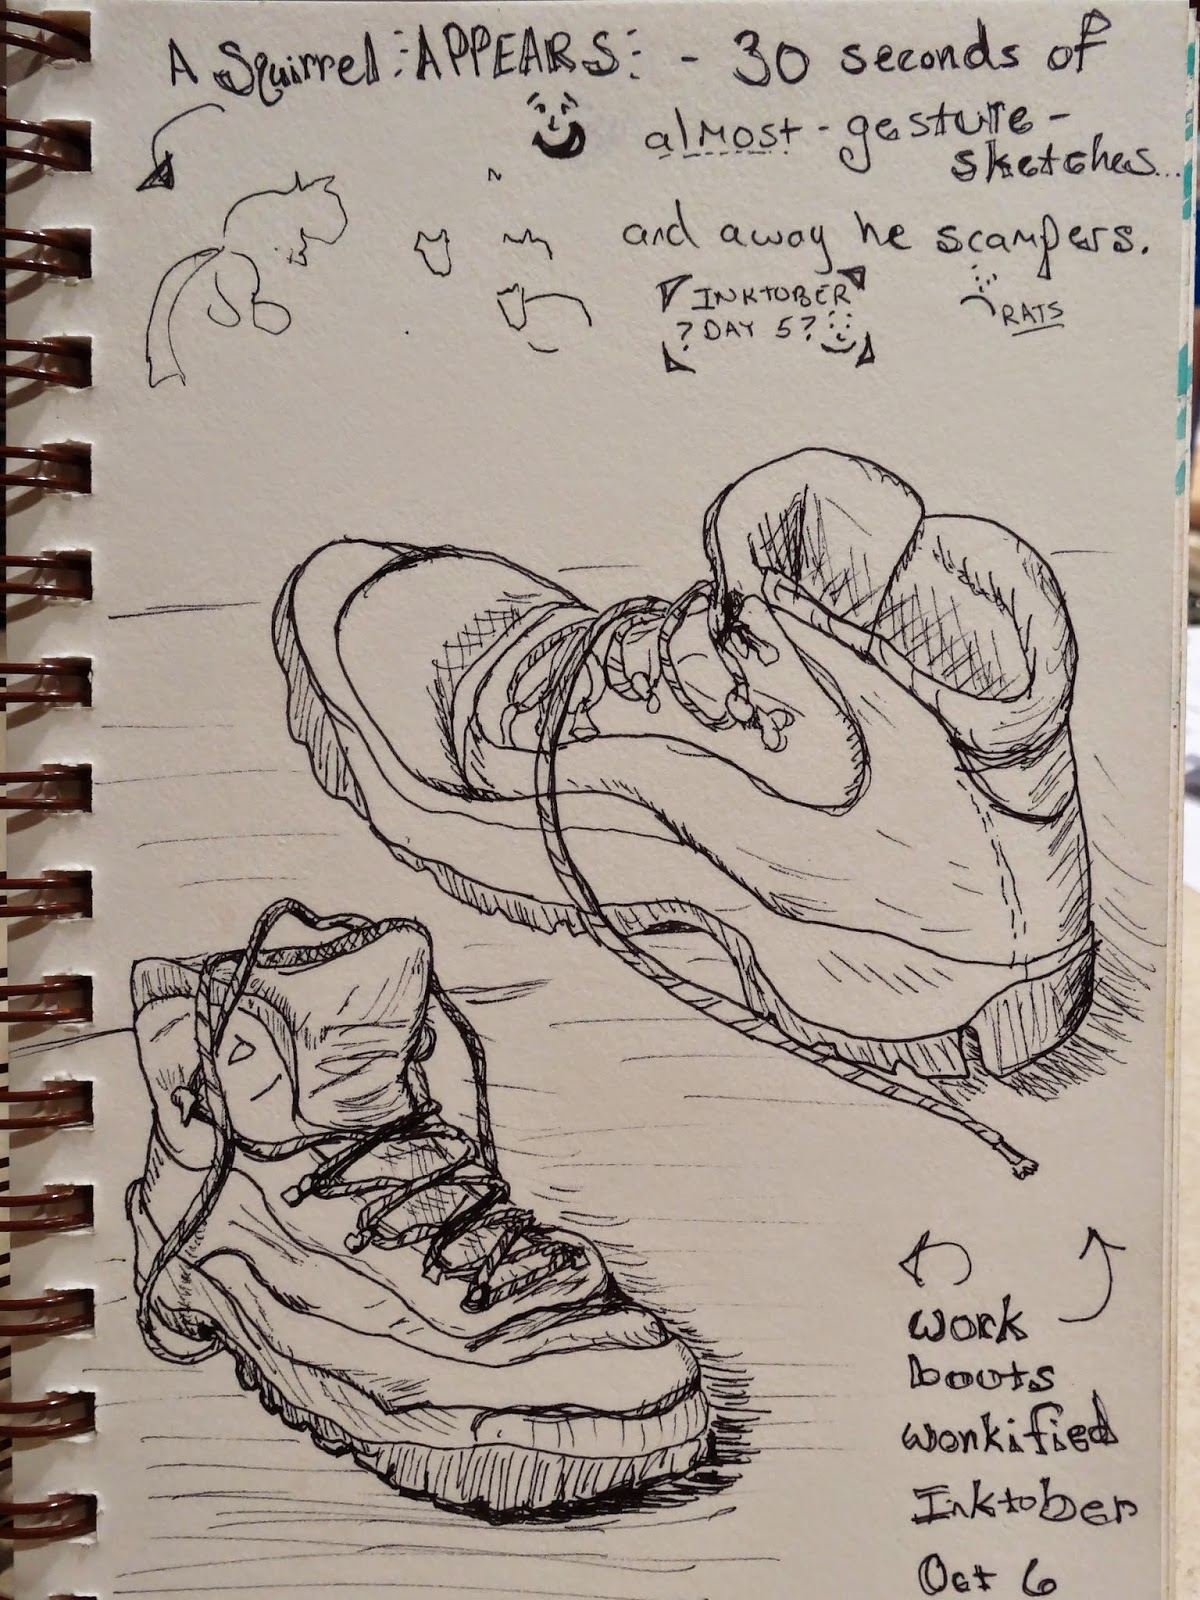 A Squirrel APPEARS - 30 seconds of
almost - gesture -
sketches...
and away he scampers.
INKTOBER
? DAY 5?
RATS
work
boots
wonkified
Inktober
Oct 6